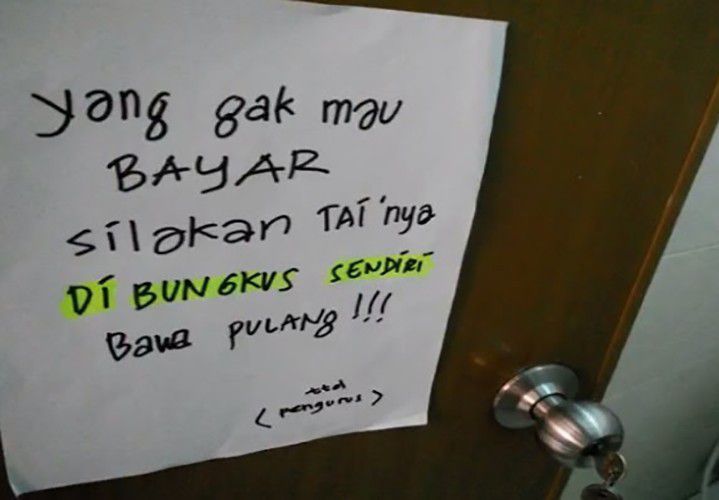 yang gak mau
BAYAR
silakan TAi'nya
Di BUNGKUS SENDiRi
Bawa PULANG!!!
ttd
(pengurus)